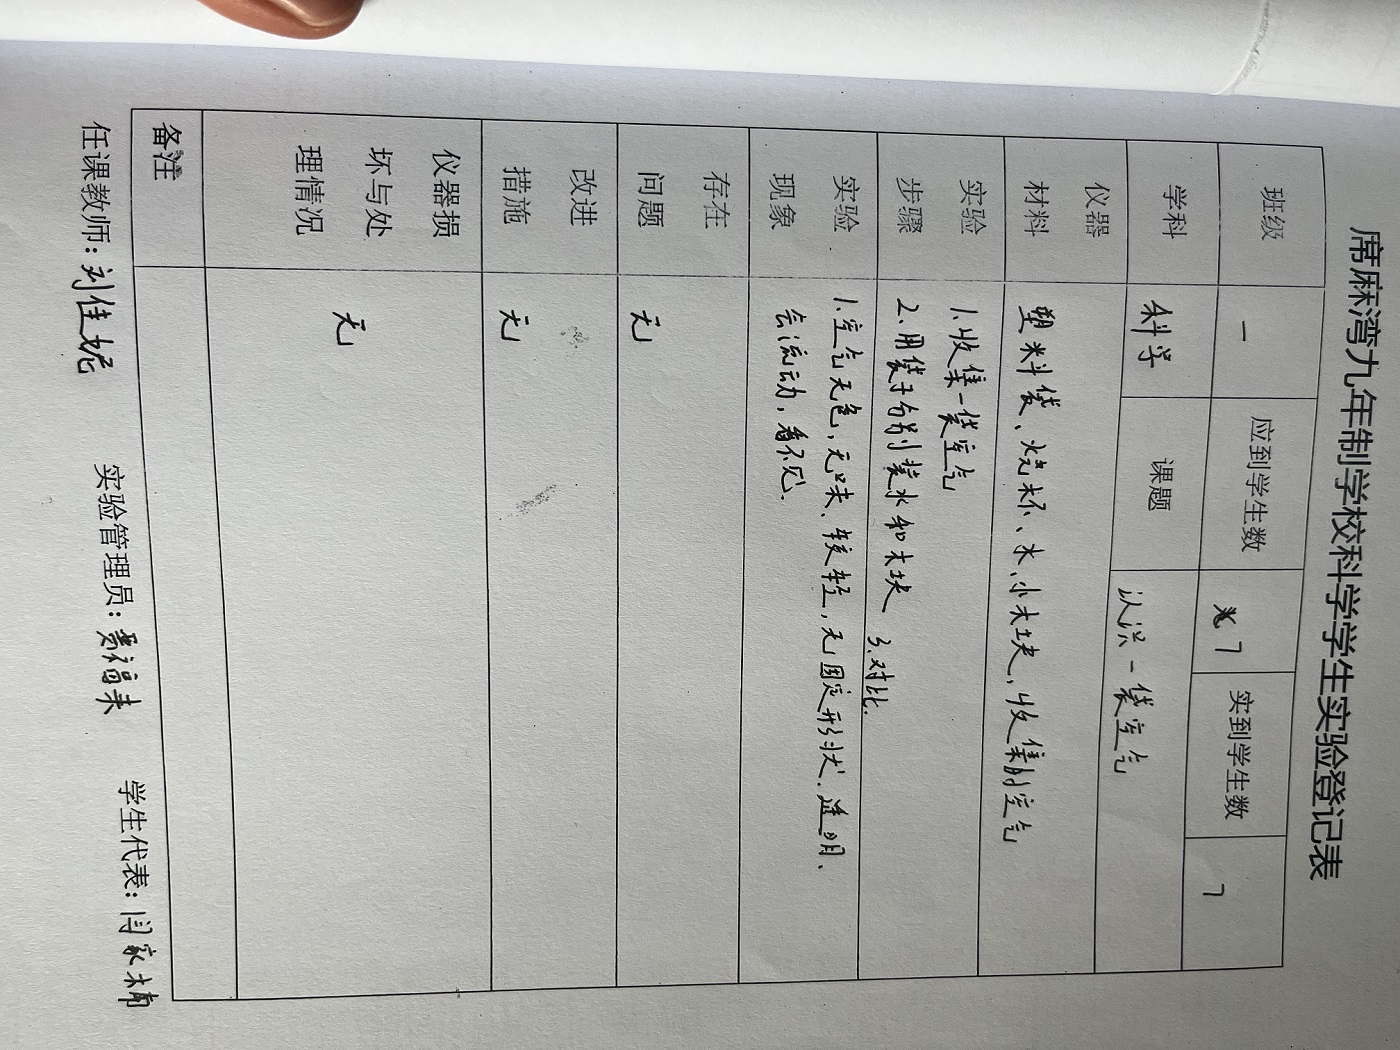 席麻湾九年制学校科学学生实验登记表
班级 一 应到学生数 7 实到学生数 7
学科 科学 课题 认识一袋空气
仪器材料 塑料袋、烧杯、水、小木块、收集的空气
实验步骤 1.收集一袋空气
2.用袋子分别装水和木块 3.对比.
实验现象 1.空气无色,无味、较轻,无固定形状.透明、
会流动,看不见.
存在问题 无
改进措施 无
仪器损坏与处理情况 无
备注
任课教师:刘佳妮 实验管理员:贾福来 学生代表:闫家楠